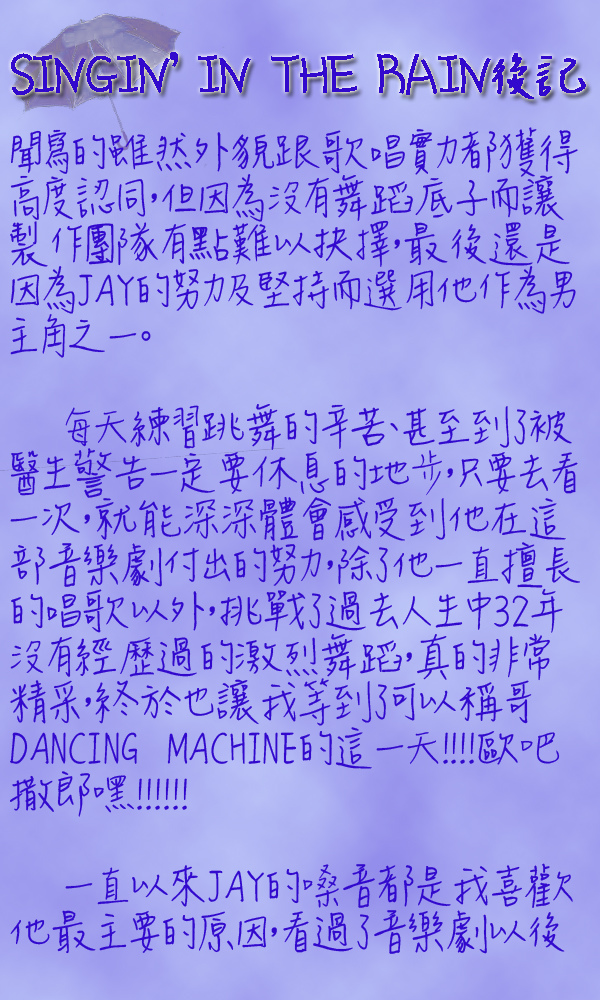 SINGIN' IN THE RAIN後記
聞寫的雖然外貌跟歌唱實力都獲得
高度認同,但因為沒有舞蹈底子而讓
製作團隊有點難以抉擇,最後還是
因為JAY的努力及堅持而選用他作為男
主角之一。
每天練習跳舞的辛苦、甚至到了被
醫生警告一定要休息的地步,只要去看
一次,就能深深體會感受到他在這
部音樂劇付出的努力,除了他一直擅長
的唱歌以外,挑戰了過去人生中32年
沒有經歷過的激烈舞蹈,真的非常
精采,終於也讓我等到了可以稱哥
DANCING MACHINE的這一天!!!!歐吧
撒郎嘿!!!!!!
一直以來JAY的嗓音都是我喜歡
他最主要的原因,看過了音樂劇以後